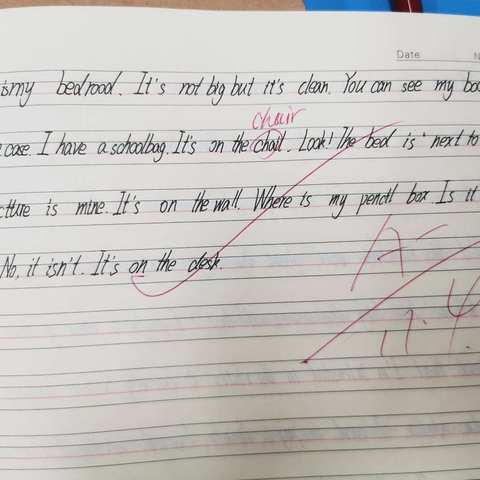 Date
is my bedrood. It's not big but it's clean. You can see my boo
chair
case. I have a schoolbag. It's on the chait. Look! The bed is next to
cture is mine. It's on the wall. Where is my pencil box Is it
No, it isn't. It's on the desk.
A-
11.4